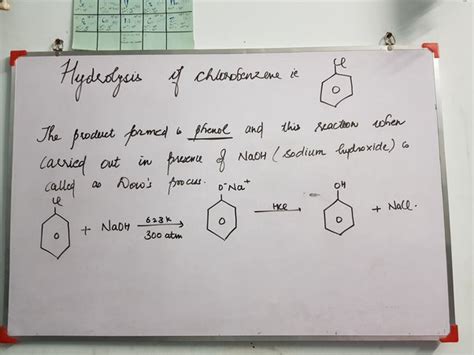 Hydrolysis of chlorobenzene ie
Cl
The product formed is phenol and this reaction when
carried out in presence of NaOH (sodium hydroxide) is
called as Dow's process.
Cl
O⁻Na⁺
OH
+ NaOH 623K 300 atm
HCl
+ NaCl.